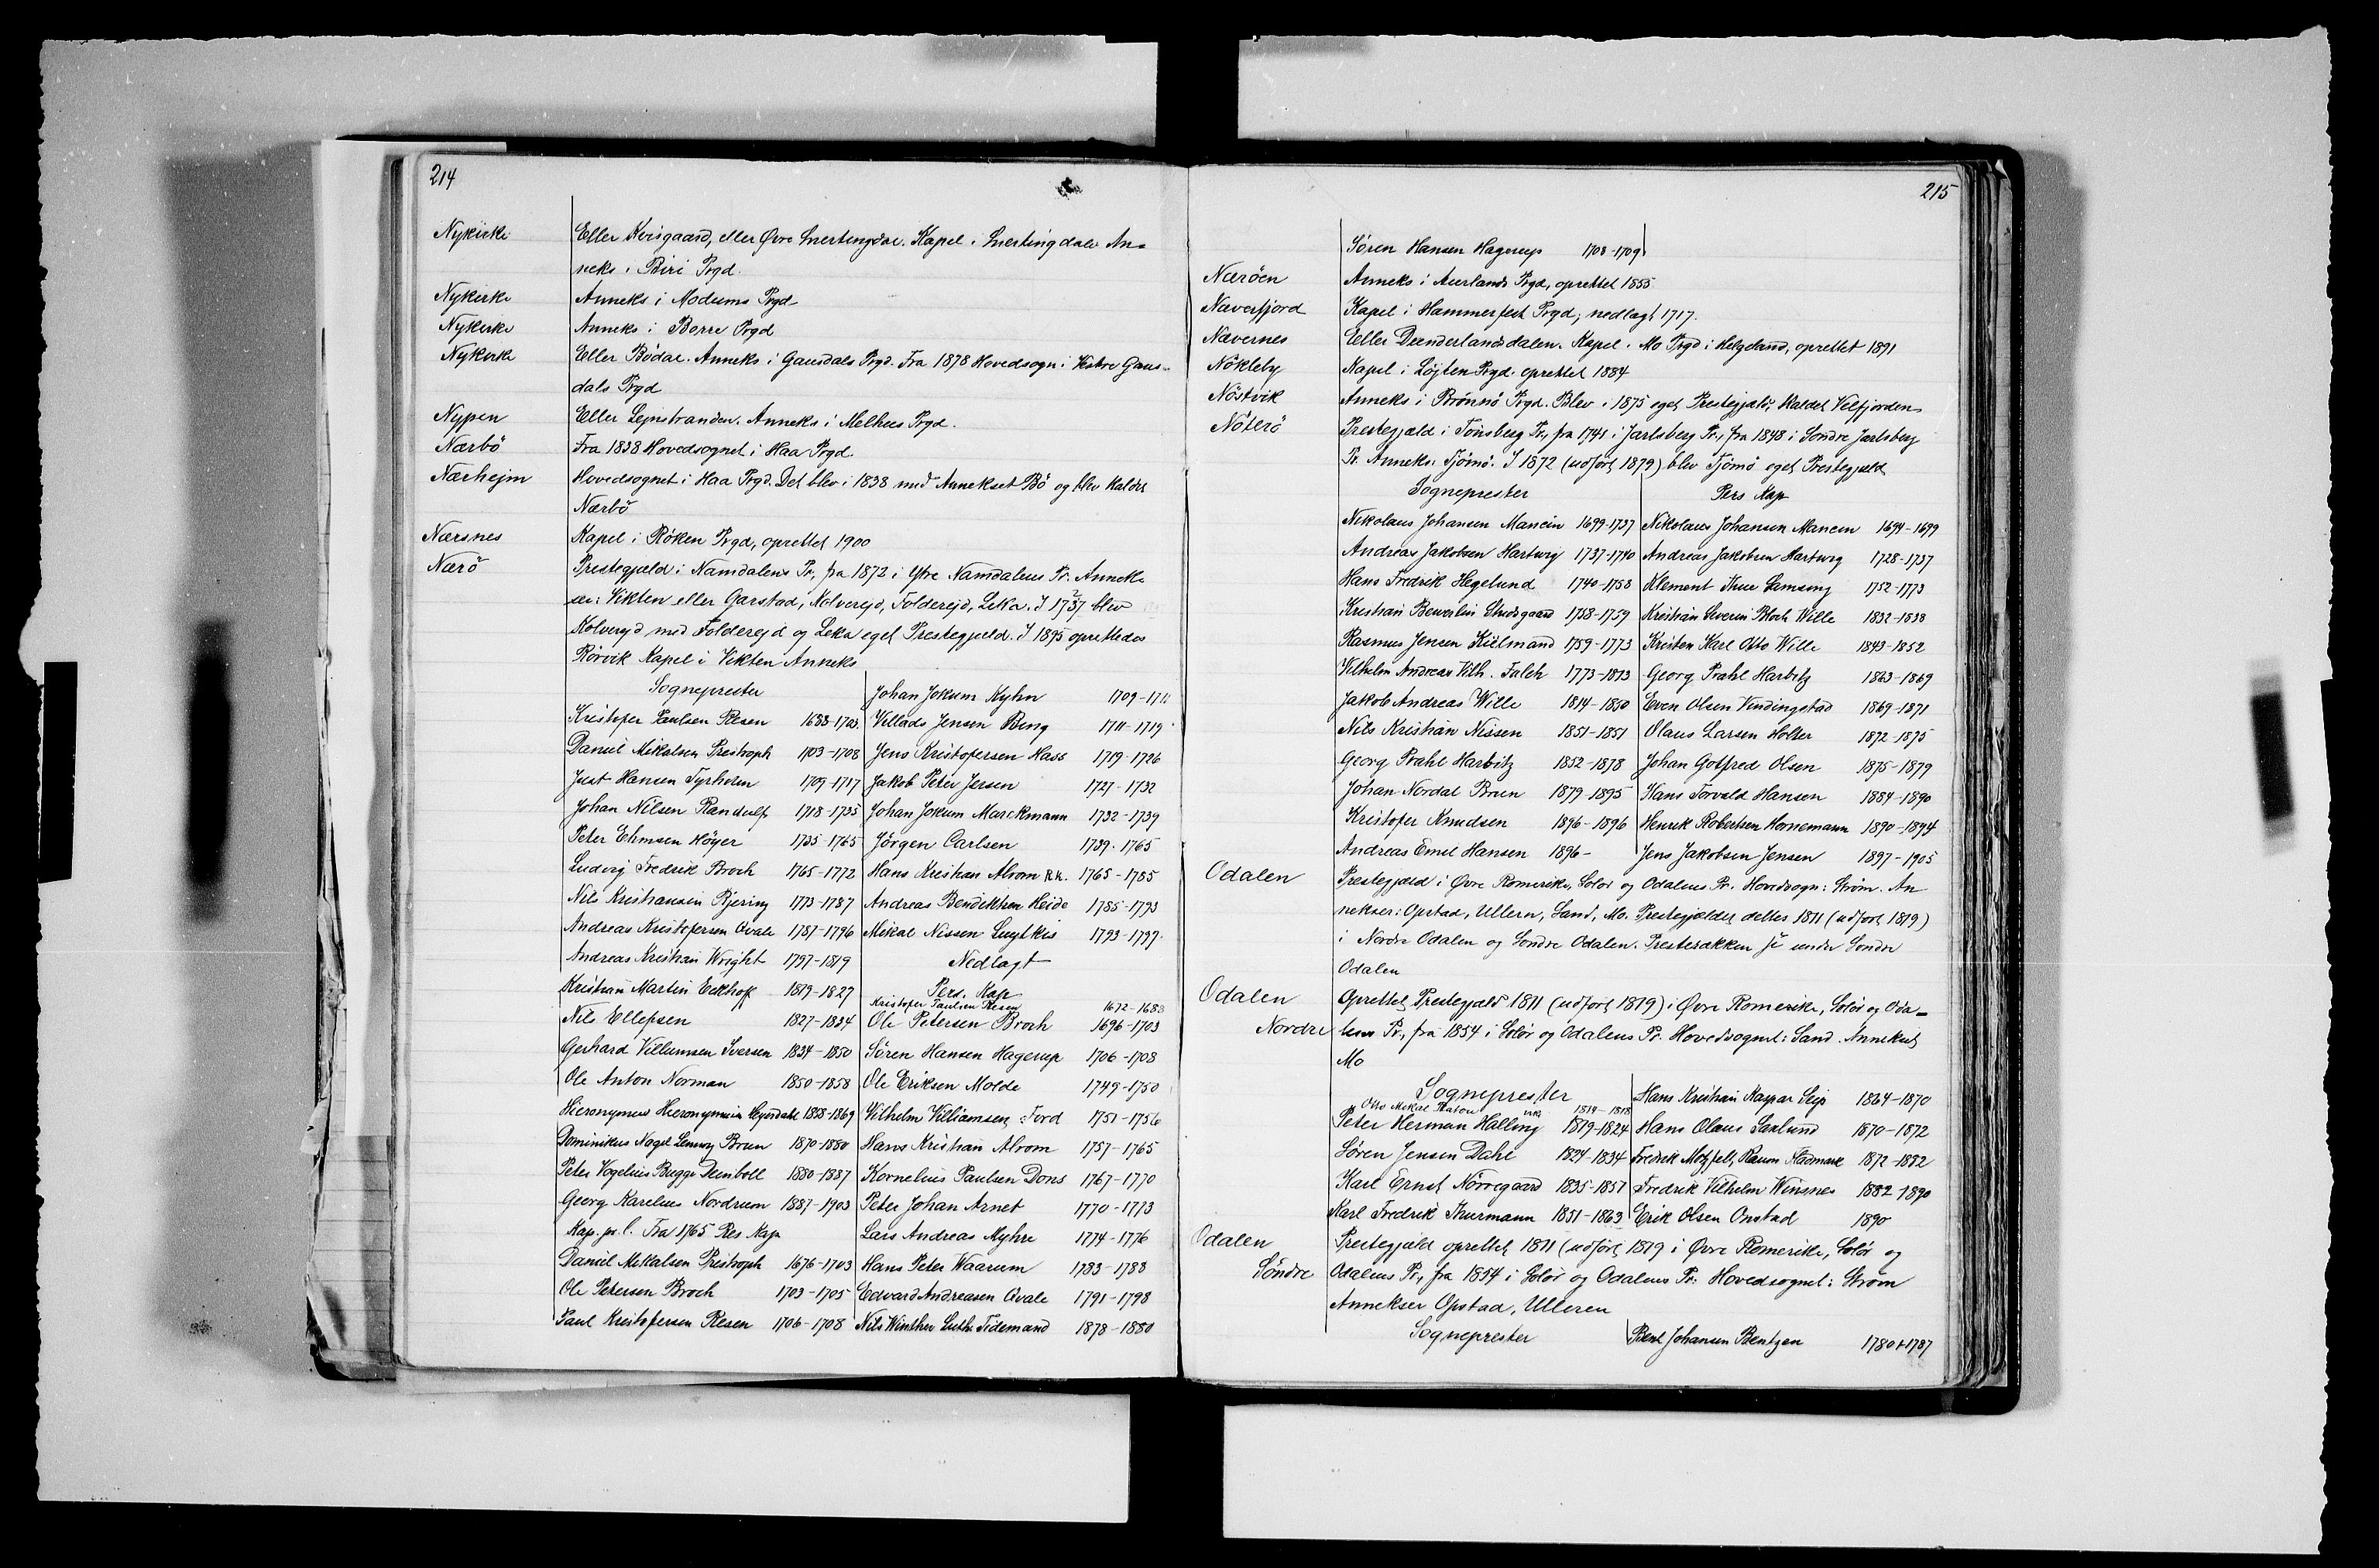 214
Nykirke Eller Kvisgaard, eller Øvre Snertingdal. Kapel i Snertingdals An-
neks i Biri Prgd.
Nykirke Anneks i Modums Prgd
Nykirke Anneks i Borre Prgd
Nykirke Eller Bödal. Anneks i Gausdals Prgd. Fra 1878 Hovedsogn i Vestre Gaus-
dals Prgd
Nypen Eller Lejnstranden. Anneks i Melhus Prgd.
Nærbö Fra 1838 Hovedsognet i Haa Prgd.
Nærhejm Hovedsognet i Haa Prgd. Det blev i 1838 med Annekset Bö og blev kaldet
Nærbö
Nærsnes Kapel i Röken Prgd, oprettet 1900
Nærö Prestegjæld i Namdalens Pr., fra 1872 i Ytre Namdalens Pr. Annek-
ser: Vikten eller Garstad, Kolverejd, Folderejd, Leka. I 1737 blev
Kolveryd med Folderejd og Leka eget Prestegjæld. I 1895 oprettedes
Rörvik Kapel i Vikten Anneks
Sogneprester
Kristofer Paulsen Resen 1688-1703
Daniel Mikalsen Prestroph 1703-1708
Just Hansen Tyrholm 1709-1717
Johan Nilsen Randulf 1718-1735
Peter Ehmsen Höyer 1735-1765
Ludvig Fredrik Broch 1765-1772
Nils Kristiansen Bjering 1773-1787
Andreas Kristofersen Qvale 1787-1796
Andreas Kristian Wright 1797-1819
Kristian Martin Eckhoff 1819-1827
Nils Ellefsen 1827-1834
Gerhard Villumsen Iversen 1834-1850
Ole Anton Norman 1850-1858
Hieronymus Hieronymus Heyerdahl 1858-1869
Dominikus Nagel Lemvig Brun 1870-1880
Peter Vogelius Bugge Deinboll 1880-1887
Georg Karelius Nordrum 1887-1903
Kap. p. l. Fra 1765 Res Kap
Daniel Mikalsen Prestroph 1676-1703
Ole Petersen Broch 1703-1705
Paul Kristofersen Resen 1706-1708
Johan Jokum Kyhn 1709-171
Villads Jensen Bing 1711-1719
Jens Kristofersen Hass 1719-1726
Jakob Peter Jersen 1727-1732
Johan Jokum Marckmann 1732-1739
Jörgen Carlsen 1739-1765
Hans Kristian Alrom R.K. 1765-1785
Andreas Bendiktsen Heide 1785-1793
Mikal Nissen Luytkis 1793-1797
Nedlagt
Pers. Kap
Kristofer Paulsen Resen 1672-1688
Ole Petersen Broch 1696-1703
Sören Hansen Hagerup 1706-1708
Ole Eriksen Molde 1749-1750
Vilhelm Villiamsen Ford 1751-1756
Hans Kristian Alrom 1757-1765
Kornelius Paulsen Dons 1767-1770
Peter Johan Arnet 1770-1773
Lars Andreas Myhre 1774-1776
Hans Peter Waarum 1783-1788
Edvard Andreasen Qvale 1791-1798
Nils Winther Luth. Tidemand 1878-1880
215
Sören Hansen Hagerup 1708-1709
Næröen Anneks i Aurlands Prgd, oprettet 1855
Næverfjord Kapel i Hammerfest Prgd, nedlagt 1717.
Nævernes Eller Dunderlandsdalen. Kapel i Mo Prgd i Helgeland, oprettet 1891
Nökleby Kapel i Löjten Prgd. oprettet 1884
Nöstvik Anneks i Brönnö Prgd. Blev i 1875 eget Prestegjæld, kaldet Velfjorden
Nöterö Prestegjæld i Tönsberg Pr., fra 1741 i Jarlsberg Pr., fra 1848 i Söndre Jarlsberg
Pr. Anneks: Tjömö. I 1872 (udfört 1879) blev Tjömö eget Prestegjæld
Sogneprester
Nikolaus Johansen Mancin 1699-1737
Andreas Jakobsen Hartwig 1737-1740
Hans Fredrik Hegelund 1740-1758
Kristian Beverlin Studsgaard 1758-1759
Rasmus Jensen Kielmand 1759-1773
Vilhelm Andreas Vilh. Falch 1773-1813
Jakob Andreas Wille 1814-1850
Nils Kristian Nissen 1851-1851
Georg Prahl Harbitz 1852-1878
Johan Nordal Brun 1879-1895
Kristofer Knudsen 1896-1896
Andreas Emil Hansen 1896-
Pers Kap
Nikolaus Johansen Mancin 1694-1699
Andreas Jakobsen Hartwig 1728-1737
Klement Thue Lemsing 1752-1773
Kristian Severin Bloch Wille 1832-1838
Kristen Karl Otto Wille 1843-1852
Georg Prahl Harbitz 1863-1869
Even Olsen Vindingstad 1869-1871
Olaus Larsen Holter 1872-1875
Johan Gotfred Olsen 1875-1879
Hans Torvald Hansen 1884-1890
Henrik Robertsen Hornemann 1890-1894
Jens Jakobsen Jensen 1897-1905
Odalen Prestegjæld i Øvre Romerike, Solör og Odalens Pr. Hovedsogn: Ström. An
nekser: Opstad, Ullern, Sand, Mo. Prestegjældet deltes 1811 (udfört 1819)
i Nordre Odalen og Söndre Odalen. Presterækken se under Söndre
Odalen
Odalen Oprettet Prestegjæld 1811 (udfört 1819) i Øvre Romerike, Solör og Oda-
Nordre lens Pr., fra 1854 i Solör og Odalens Pr. Hovedsognet: Sand. Annekset
Mo
Sogneprester
Otto Mikal 1814-1818
Peter Herman Halling 1819-1824
Sören Jensen Dahl 1824-1834
Karl Ernst Nörregaard 1835-1851
Karl Fredrik Thurmann 1851-1863
Hans Kristian Kaspar Seip 1864-1870
Hans Olaus Saxlund 1870-1872
Fredrik Motzfelt Raum Fladmark 1872-1882
Fredrik Vilhelm Winsnes 1882-1890
Erik Olsen Onstad 1890
Odalen Prestegjæld oprettet 1811 (udfört 1819 i Øvre Romerike, Solör og
Söndre Odalens Pr., fra 1854 i Solör og Odalens Pr. Hovedsognet: Ström
Annekser Opstad, Ulleren
Sogneprester
Bent Johansen Bentzen 1780-1787